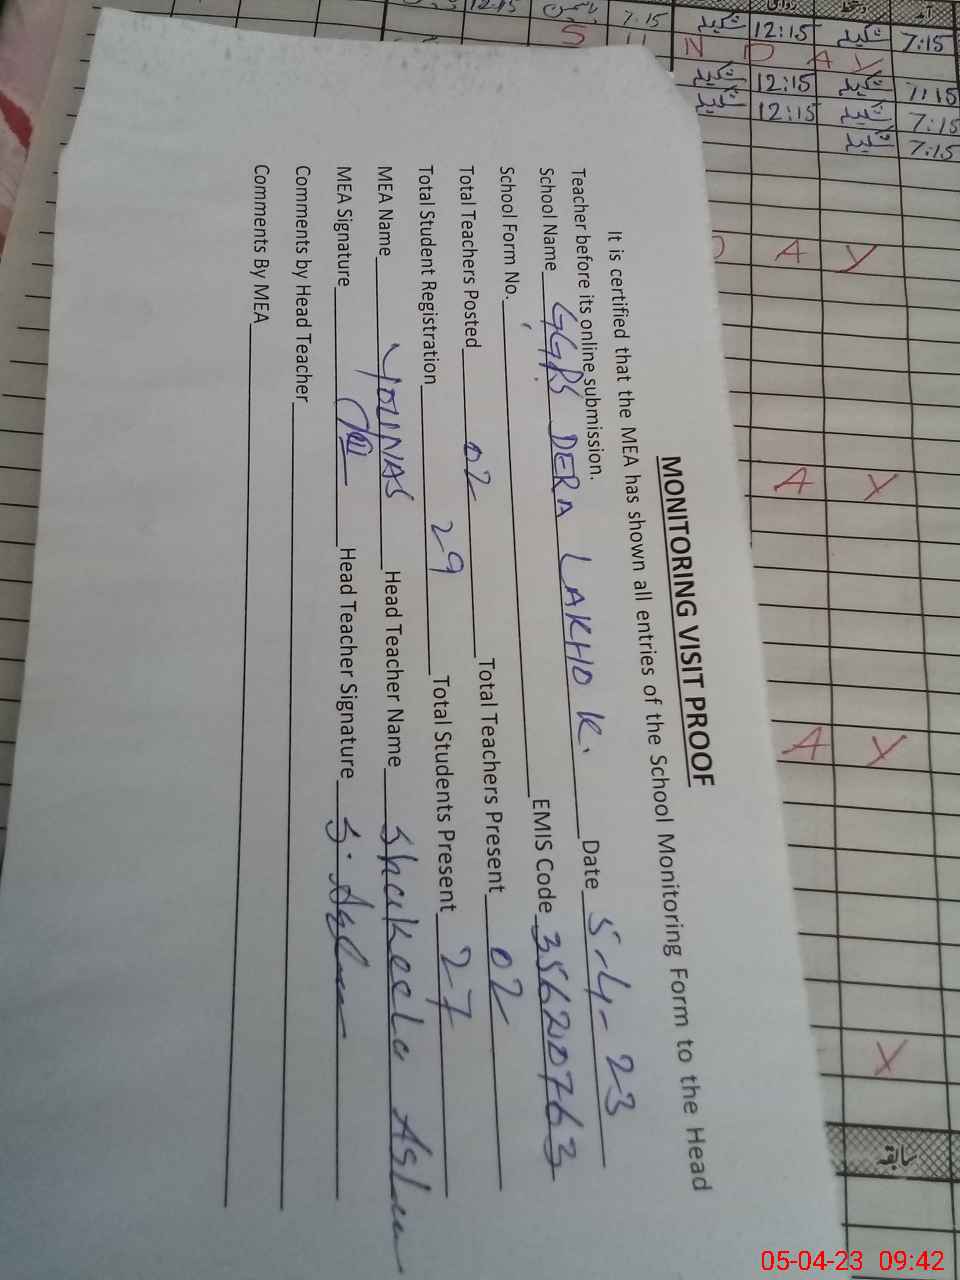 MONITORING VISIT PROOF
It is certified that the MEA has shown all entries of the School Monitoring Form to the Head
Teacher before its online submission.
School Name GGPS DERA LAKHO K. Date 5-4-23
School Form No. EMIS Code 35620763
Total Teachers Posted 02 Total Teachers Present 02
Total Student Registration 29 Total Students Present 27
MEA Name YOUNAS Head Teacher Name Shakeela Aslam
MEA Signature Head Teacher Signature S. Aslam
Comments by Head Teacher
Comments By MEA
12:15 7:15 12:15 7:15
S N D A Y
12:15 7:15
12:15 7:15
7:15
D A Y
A Y
A Y
Y
05-04-23 09:42